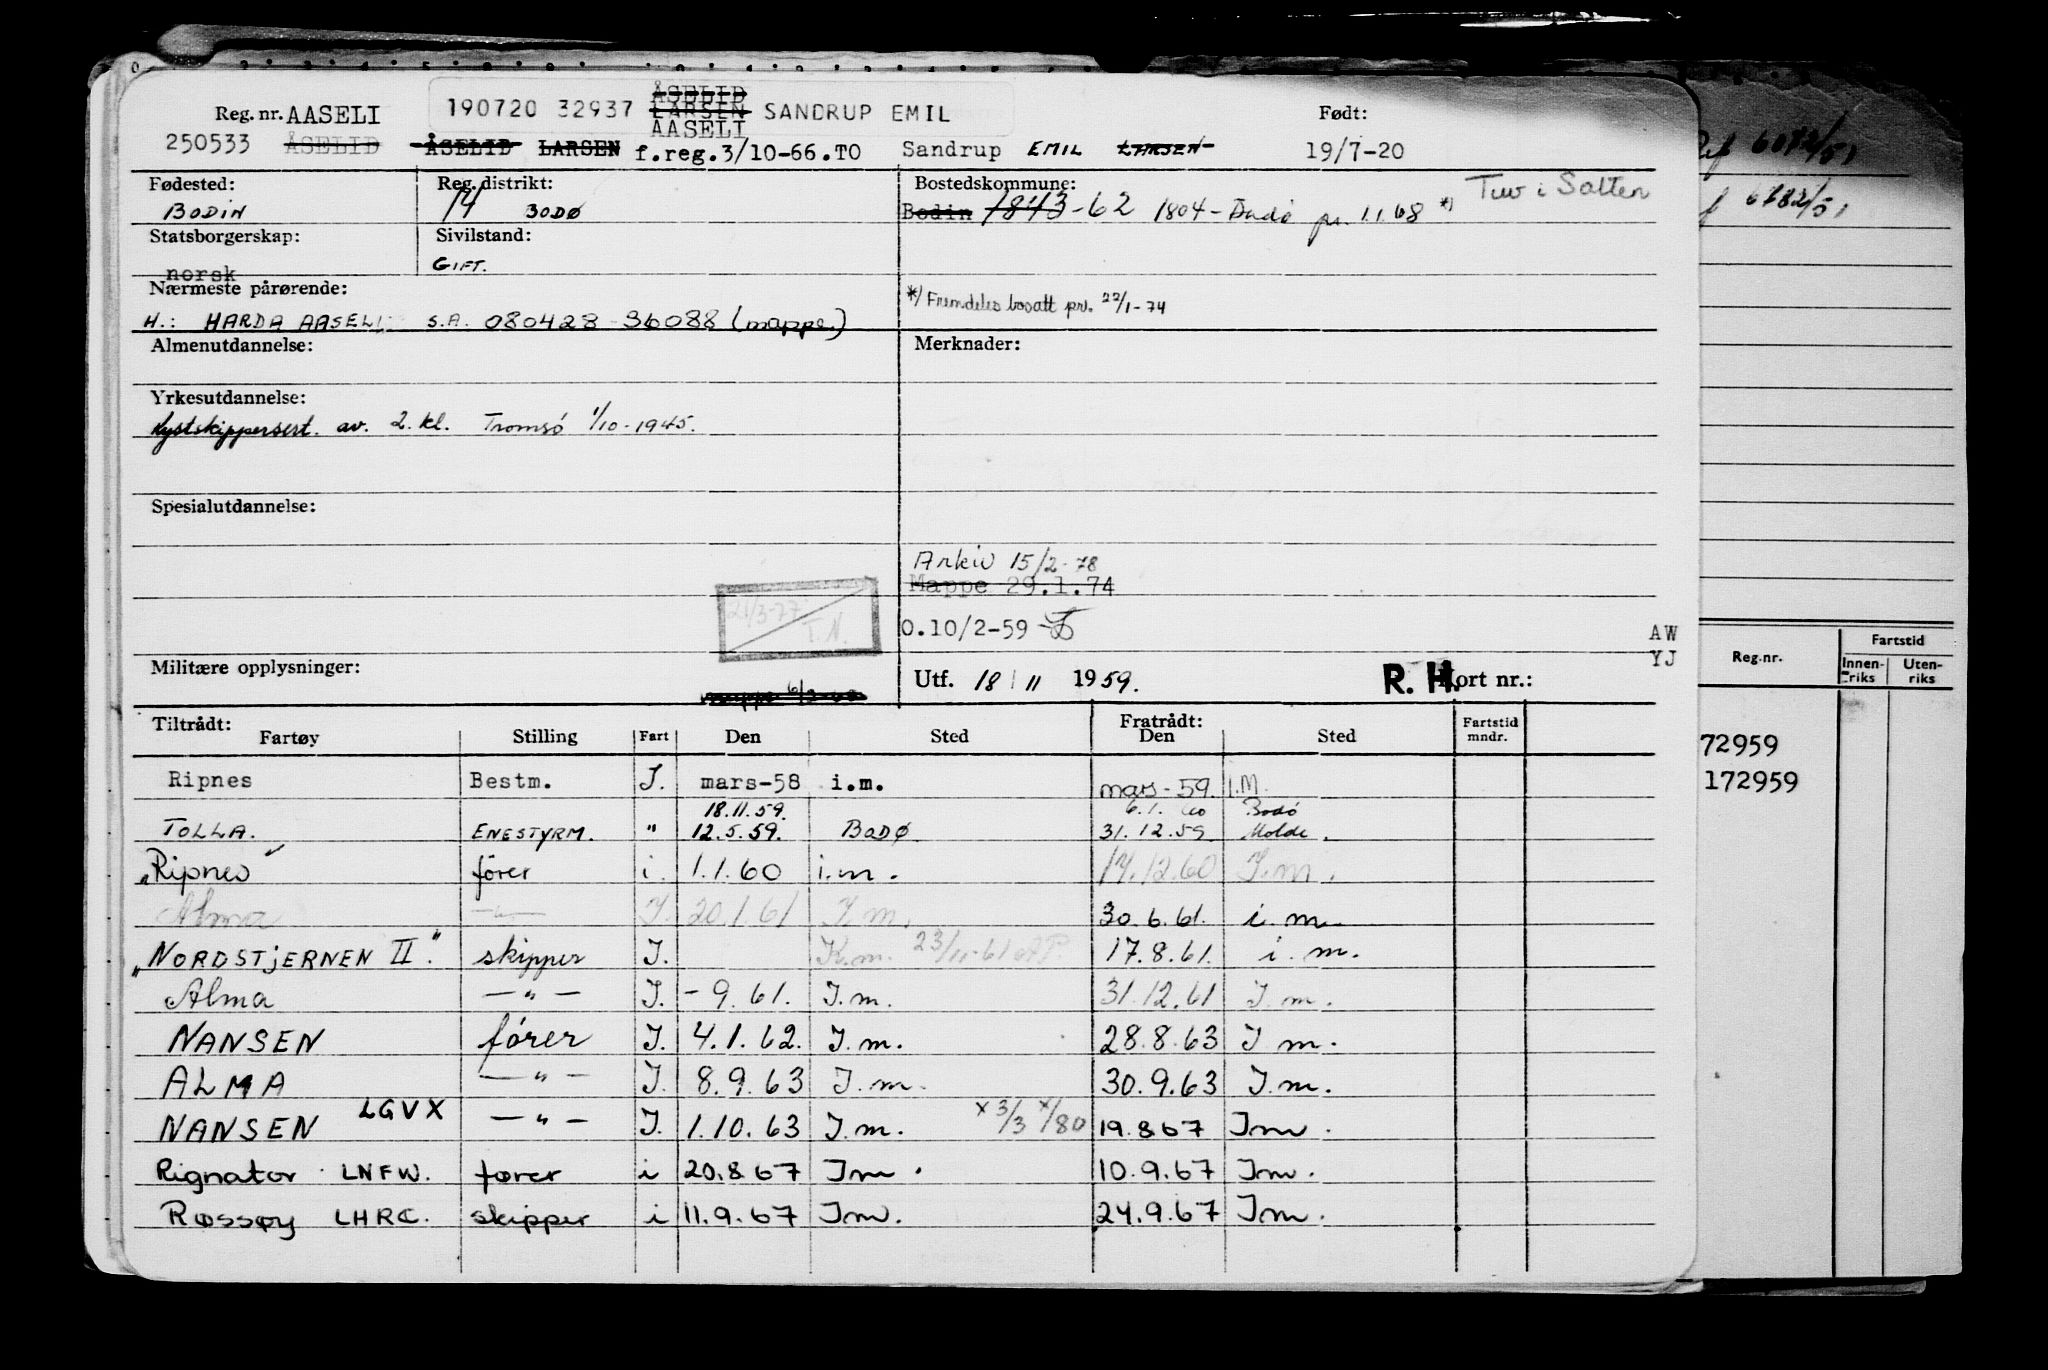 Reg. nr. AASELI 190720 32937 ÅSELID LARSEN AASELI SANDRUP EMIL Født:
250533 ÅSELID ÅSELID LARSEN f.reg.3/10-66.TO Sandrup EMIL LARSEN 19/7-20
Fødested: Reg. distrikt: Bostedskommune: Tuv i Salten
BODIN 14 BODØ Bodin 1843-62 1804- Bodø pr. 1.1.68 *)
Statsborgerskap: Sivilstand:
norsk GIFT.
Nærmeste pårørende: *) Fremdeles bosatt pr. 22/1-74
H.: HARDA AASELI S.A. 080428 36088 (mappe)
Almenutdannelse: Merknader:
Yrkesutdannelse:
kystskippersert. av. 2. kl. Tromsø 1/10-1945.
Spesialutdannelse:
Arkiv 15/2-78
Mappe 29.1.74
21/3-77 T.N.
0.10/2-59
AW
YJ
Militære opplysninger: Utf. 18/11 1959. R. H. Kort nr.:
Tiltrådt: Fratrådt:
Fartøy Stilling Fart Den Sted Den Sted Fartstid mndr.
Ripnes Bestm. I. mars-58 i.m. mars-59. I.M.
18.11.59. 6.1.60 Bodø
TOLLA. ENESTYRM. " 12.5.59. BODØ 31.12.59 Molde.
"Ripnes" fører i. 1.1.60 i.m. 14.12.60 I.m.
Alma —"— I. 20.1.61 I.m. 30.6.61. i.m.
"NORDSTJERNEN II". skipper I. K.m. 23/11-61 17.8.61. i.m.
Alma —"— I. -9.61. I.m. 31.12.61 I.m.
NANSEN fører I. 4.1.62. I.m. 28.8.63 I m.
ALMA —"— I. 8.9.63 I.m. 30.9.63 I.m.
NANSEN LGVX —"— I. 1.10.63 I.m. x 3/3 x/80 19.8.67 Im.
Rignator LNFW. fører i 20.8.67 Im. 10.9.67 Im.
Røssøy LHRC. skipper i 11.9.67 Im. 24.9.67 Im.
Ref 6072/51
6782/51
Reg.nr. Fartstid
Innen-riks Uten-riks
72959
172959